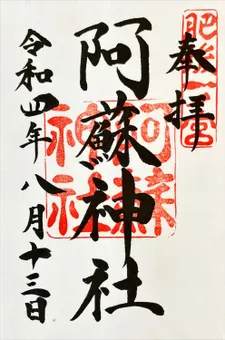 肥後一宮
奉拝
阿蘇神社
阿蘇
神社
令和四年八月十三日